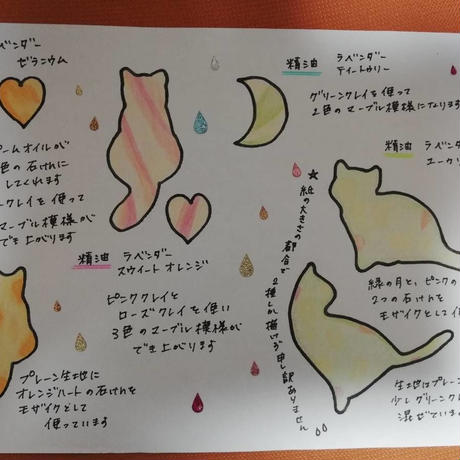 ベンダー
ゼラニウム
ームオイルが
色の石けんに
してくれます
クレイを使って
マーブル模様が
でき上がります
プレーン生地に
オレンジハートの石けんを
モザイクとして
使っています
精油 ラベンダー
スウィート オレンジ
ピンククレイと
ローズクレイを使い
3色のマーブル模様が
でき上がります
精油 ラベンダー
ティートゥリー
グリーンクレイを使って
2色のマーブル模様になります
★紙の大きさの都合で
2種しか描けず申し訳ありません
精油 ラベンダ
ユーカリ
緑の月と、ピンクの
2つの石けんを
モザイクとして使
生地はプレーン
少しグリーンク
混ぜています